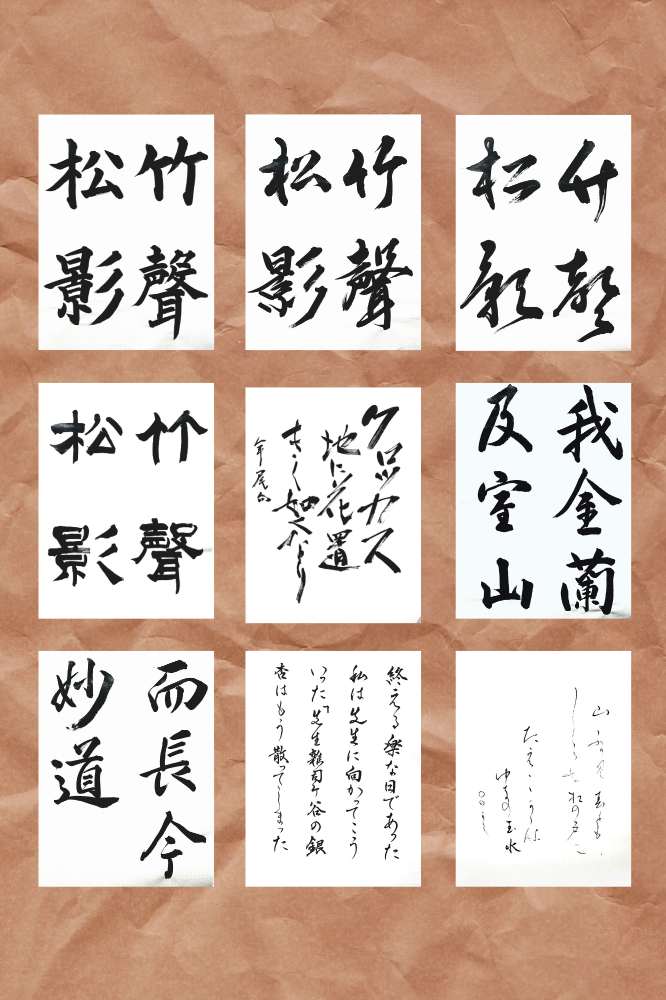 竹聲
松影
竹聲
松影
竹聲
松影
竹聲
松影
クロッカス
地に花置
きし如くなり
年尾句
我金蘭
及室山
而長今
妙道
終える楽な日であった
私は先生に向かってこう
いった「先生雑司ケ谷の銀
杏はもう散ってしまった
松の戸に
玉水